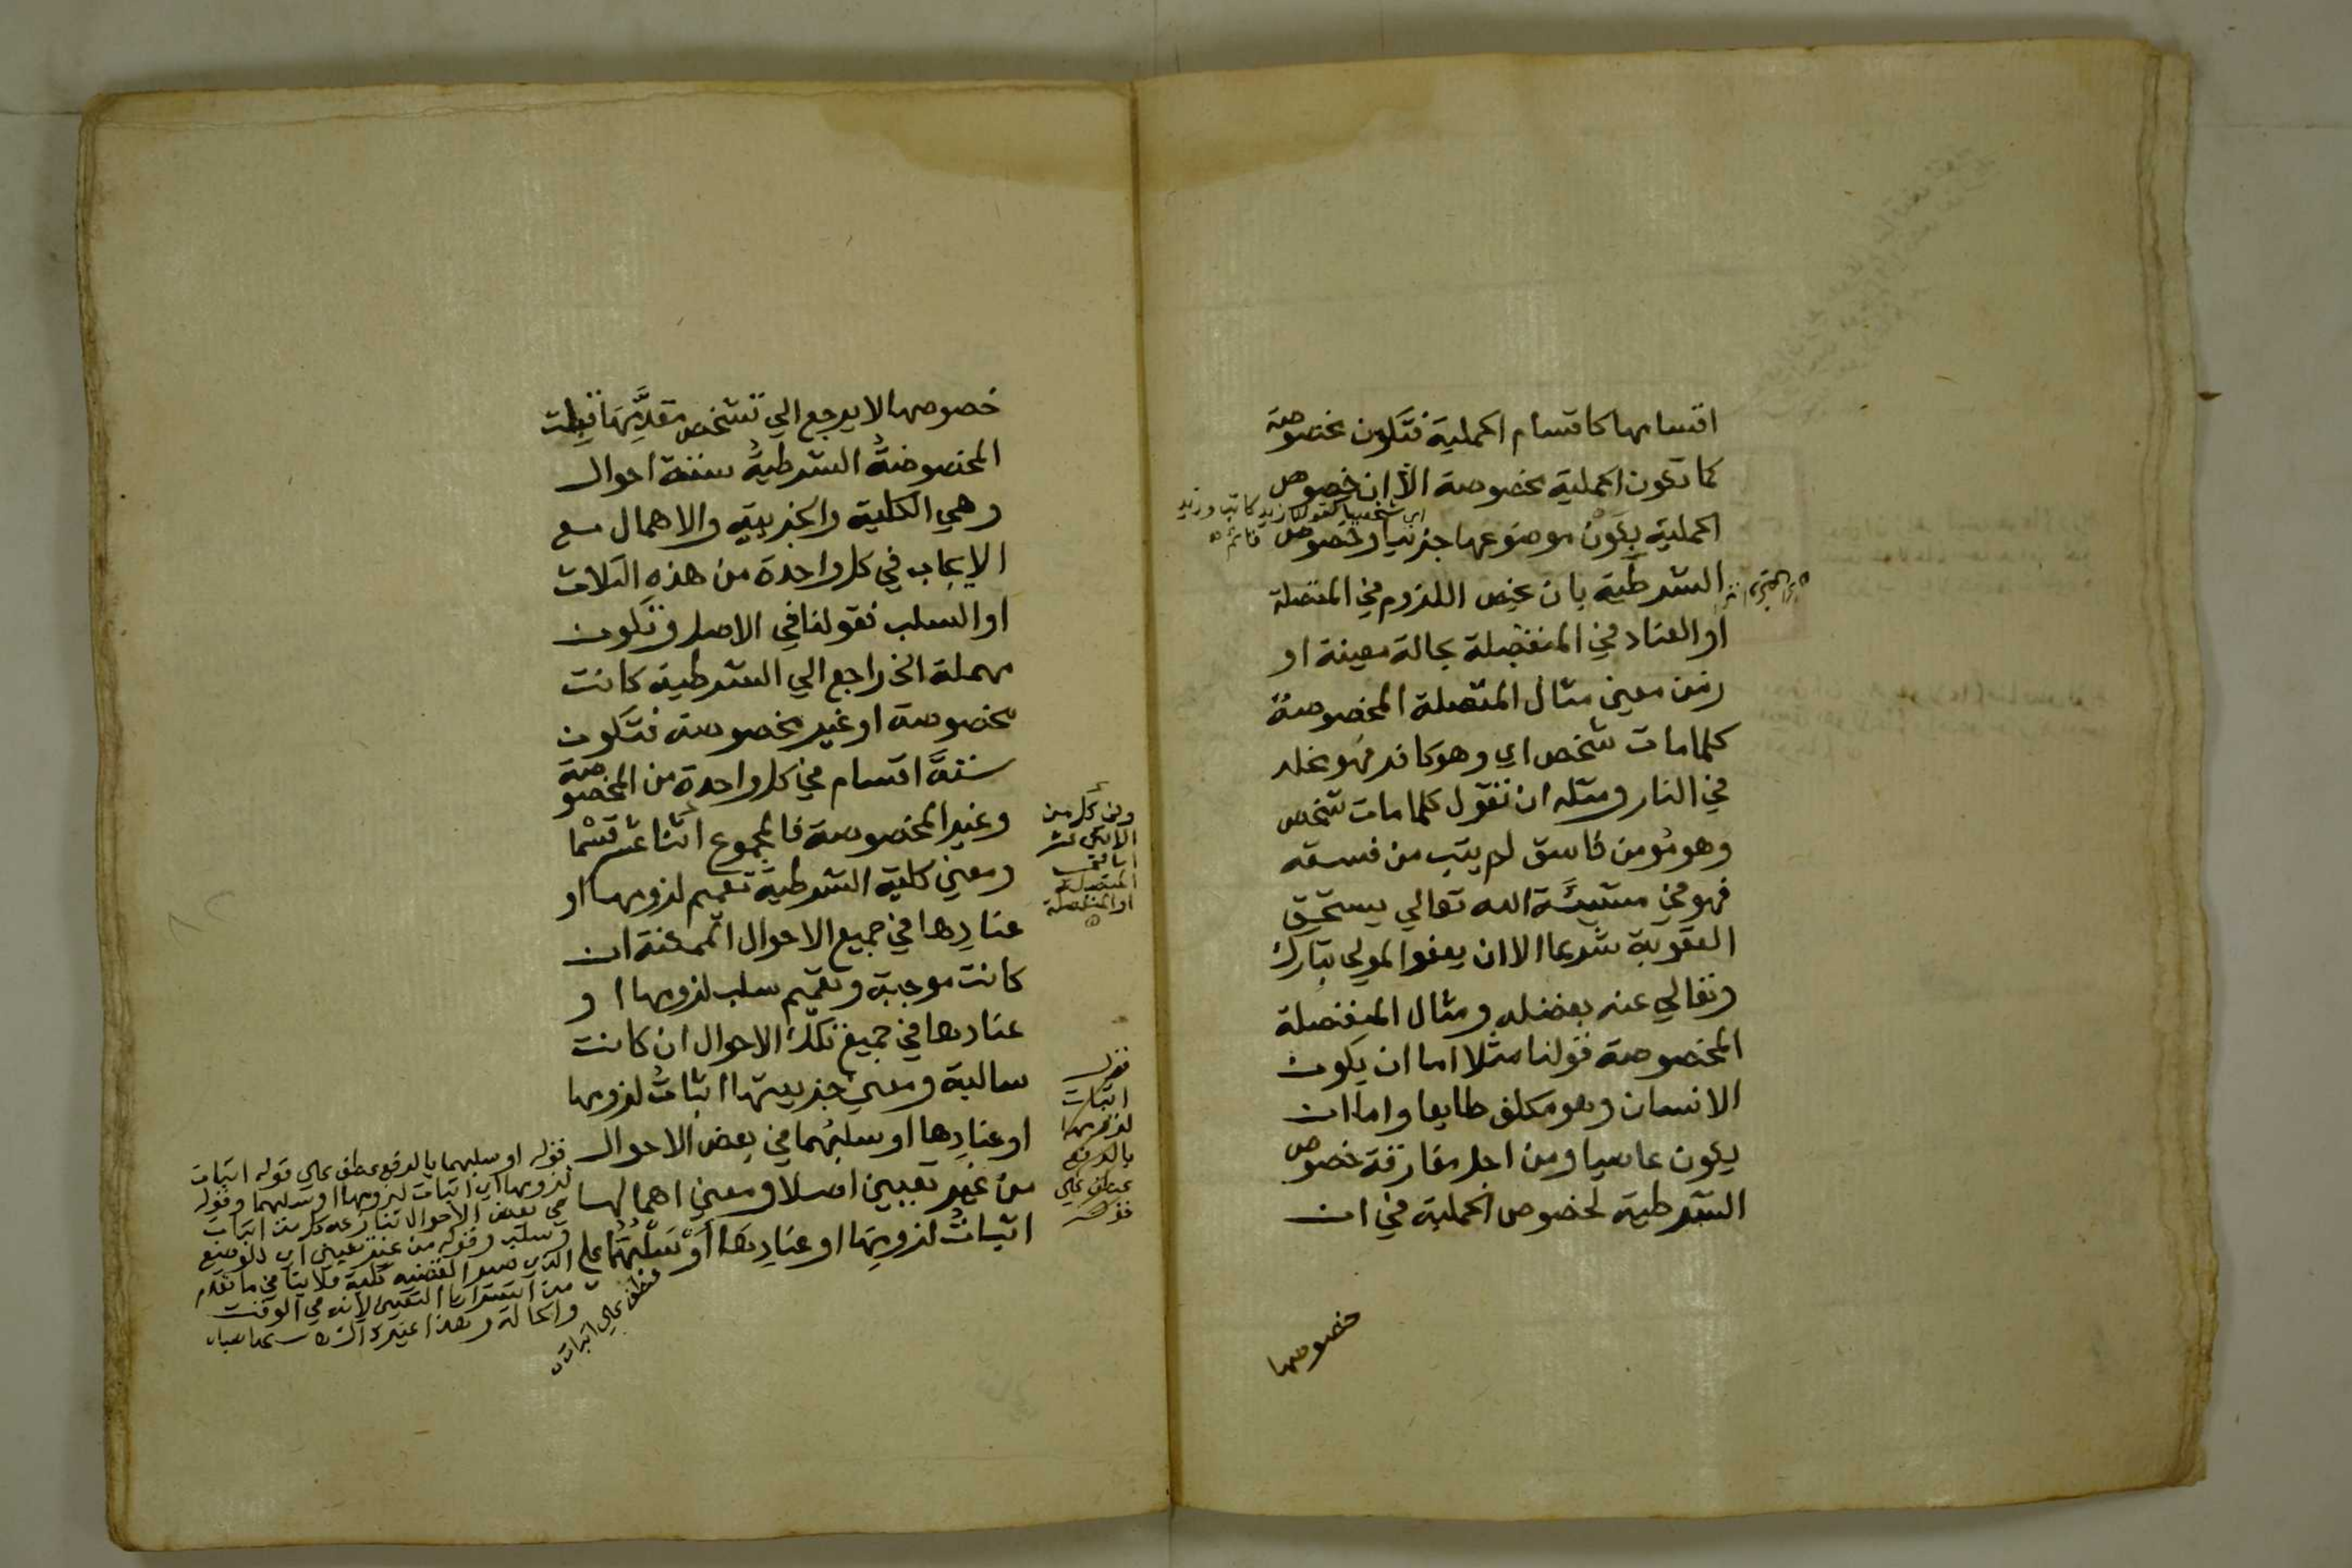 اقسامها كاقسام الحملية فتكون مخصوصة
كما تكون الحملية مخصوصة الا ان خصوص
اي شخصيا كقولك زيد كاتب وزيد
قائم
الحملية بكون موضوعها جزئيا وخصوص
الشرطية بان يخص اللزوم في المتصلة
او العناد في المنفصلة بحالة معينة او
زمن معين مثال المتصلة المخصوصة
كلما مات شخص اي وهو كافر فهو مخلد
في النار ومثله ان تقول كلما مات شخص
وهو مؤمن فاسق لم يتب من فسقه
فهو في مشيئة الله تعالي يستحق
العقوبة شرعا الا ان يعفو المولي تبارك
وتعالي عنه بفضله ومثال المنفصلة
المخصوصة قولنا مثلا اما ان يكون
الانسان وهو مكلف طايعا واما ان
يكون عاصيا ومن اجل مفارقة خصوص
الشرطية لخصوص الحملية في ان
خصوصها
خصوصها لا يرجع الي تشخص مقدمها قبلت
المخصوصة الشرطية ستة احوال
وهي الكلية والجزيية والاهمال مع
الايجاب في كل واحدة من هذه الثلاث
او السلب فقولنا في الاصل وتكون
مهملة الخ راجع الي الشرطية كانت
مخصوصة او غير مخصوصة فتكون
ستة اقسام في كل واحدة من المخصوصة
وغير المخصوصة فالمجموع اثنا عشر قسما
ومعني كلية الشرطية تعميم لزومها او
عنادها في جميع الاحوال الممكنة ان
كانت موجبة وتعميم سلب لزومها او
عنادها في جميع تلك الاحوال ان كانت
سالبة ومعني جزييتها اثبات لزومها
او عنادها او سلبهما في بعض الاحوال
من غير تعيين اصلا ومعني اهمالها
اثبات لزومها او عنادها او سلبهما علي
وفي كل من
الاثني عشر
المتصلة
او المنفصلة
قوله
اثبات
لزومها
بالرفع
عطف علي
قوله
قوله او سلبهما بالرفع عطف علي قوله اثبات
لزومها اي اثبات لزومها او سلبهما وقوله
في بعض الاحوال تنازعه كل من اثبات
وسلب وقوله من غير تعيين اي
الذي صير القضية كلية فلا ينافي ما تقدم
من التعيين لانه في الوقت
والحالة وهذا غير
عطف علي اثبات